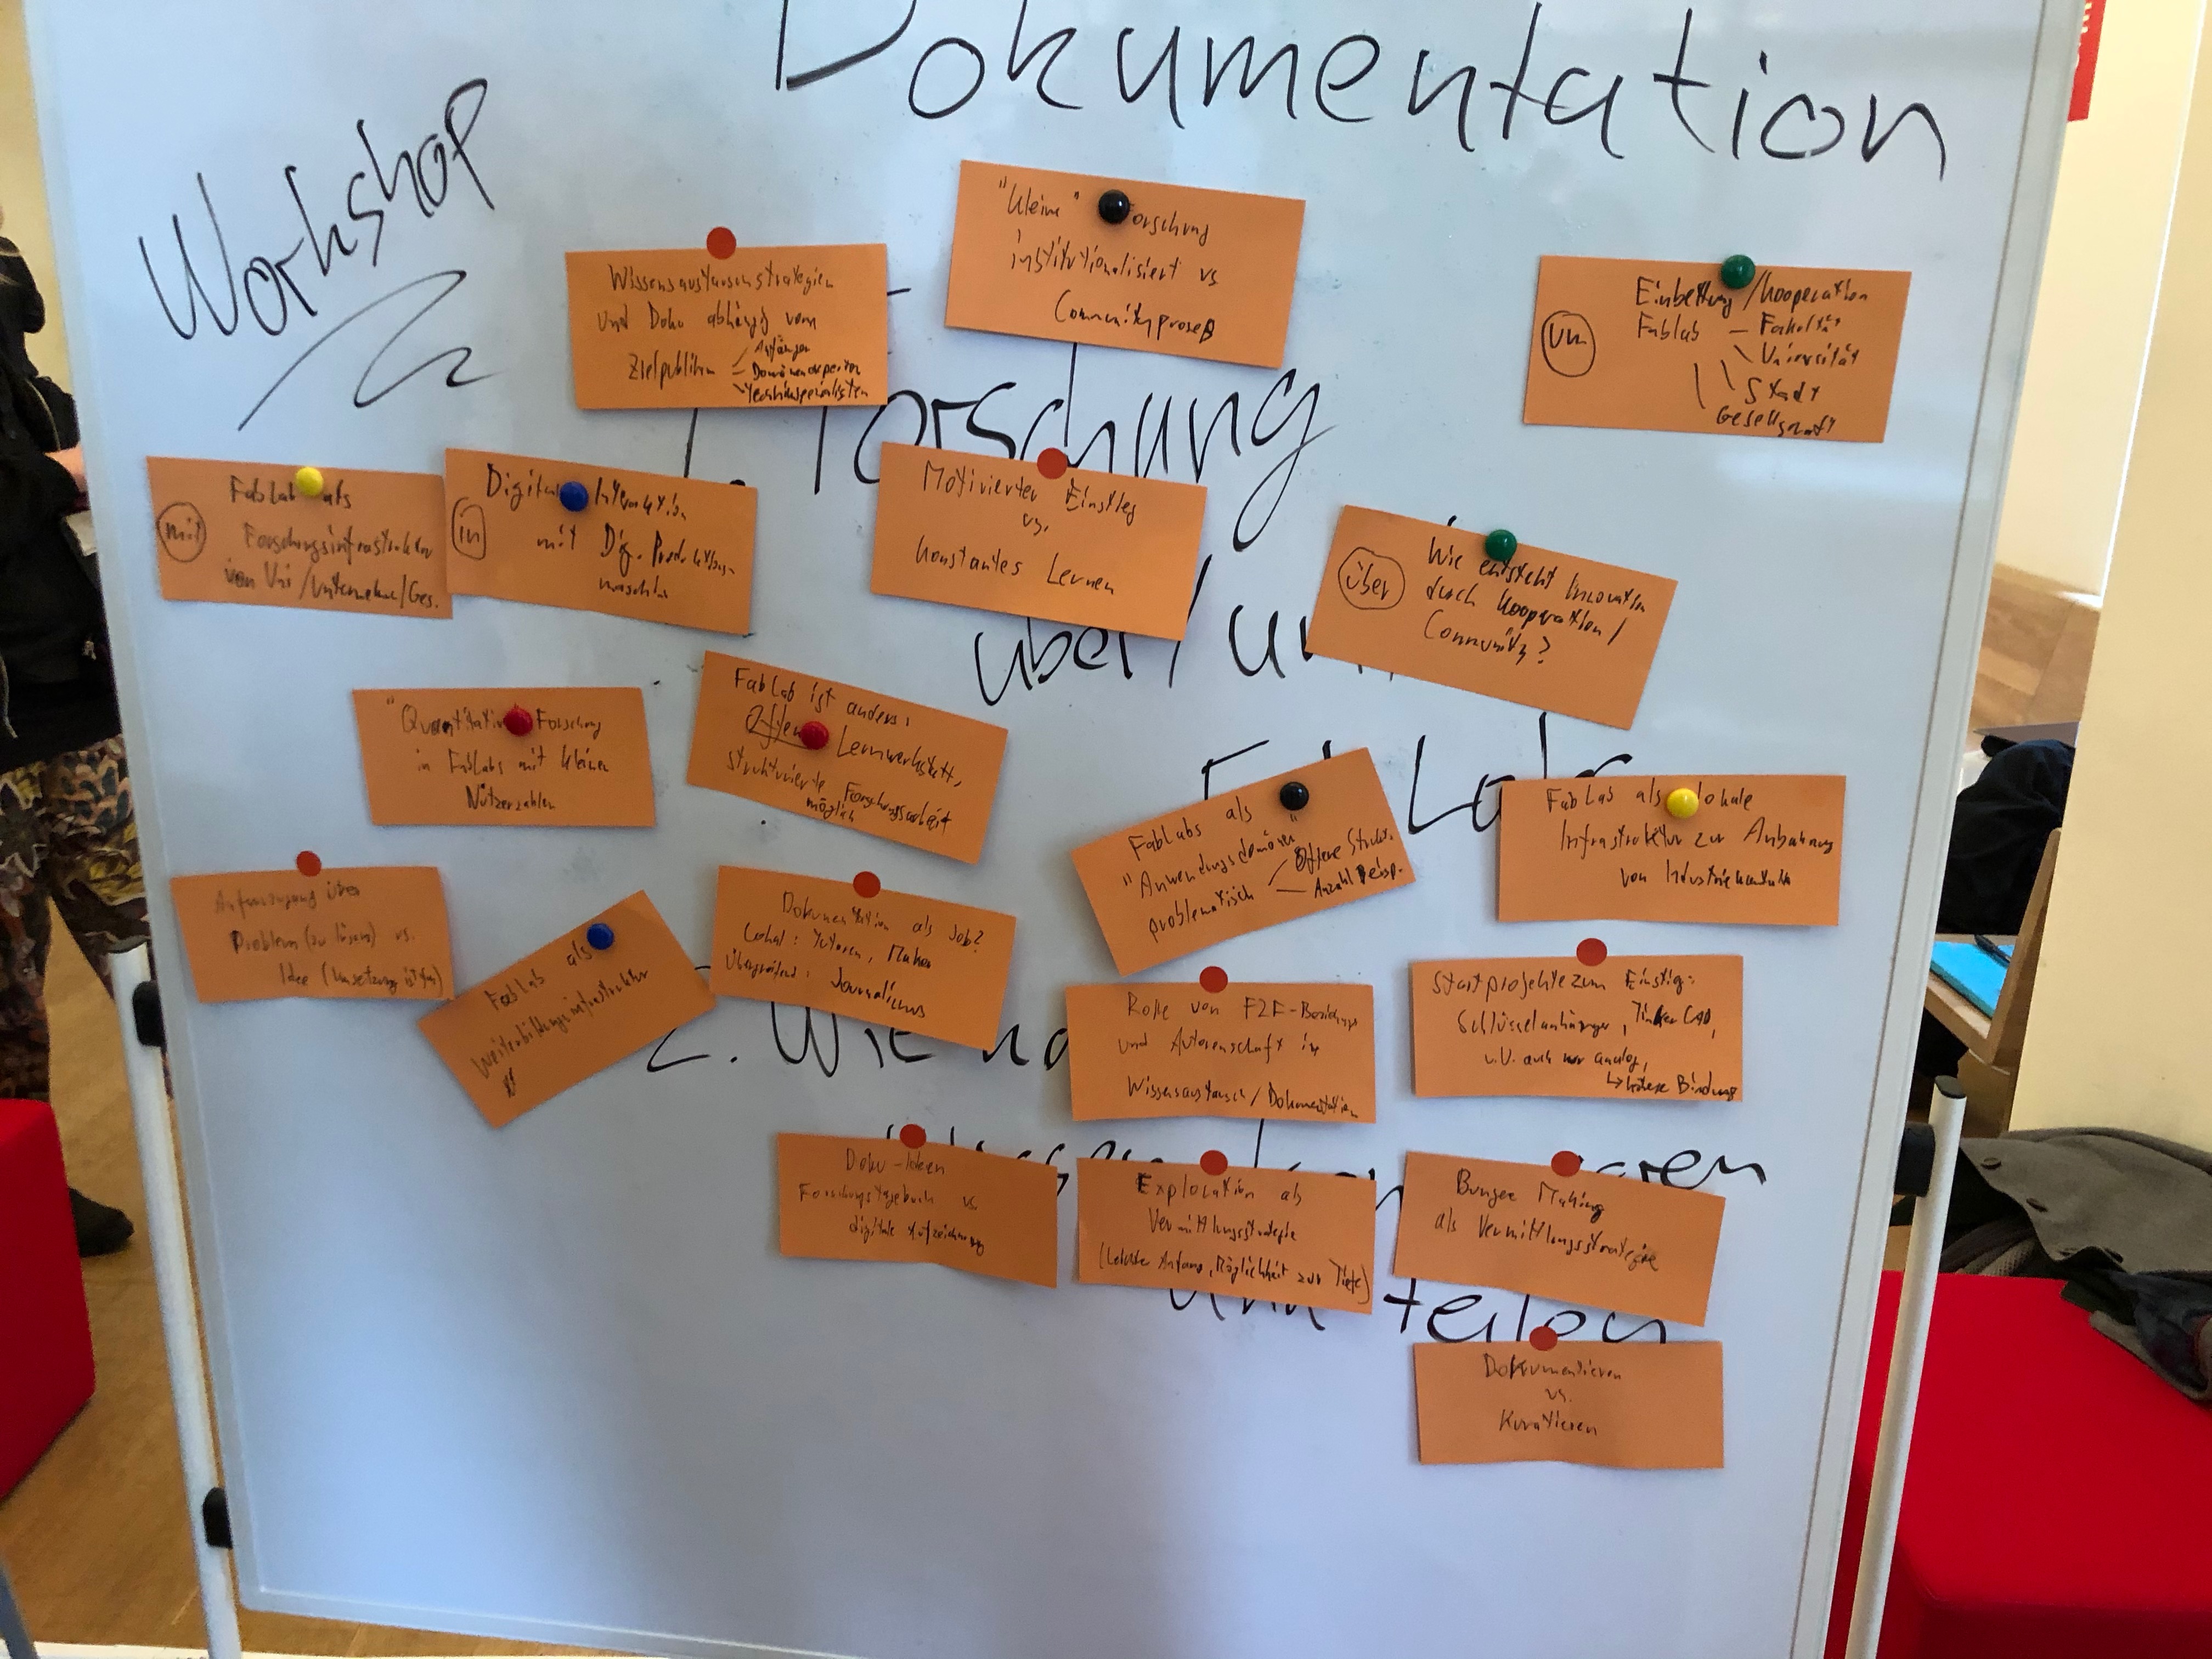 Dokumentation
Workshop
"Kleine" Forschung
institutionalisiert vs
Communityprozeß
Wissensaustauschstrategien
und Doku abhängig vom
Zielpublikum
Anfänger
Domänenexperten
Technikspezialisten
um
Einbettung/Kooperation
Fablab
Fakultät
Universität
Stadt
Gesellschaft
Forschung
mit
FabLab als
Forschungsinfrastruktur
von Uni/Unternehm/Ges.
in
Digital Interaktion
mit Dig. Produktions-
maschin
Motivierter Einstieg
vs.
konstantes Lernen
über
Wie entsteht Innovation
durch Kooperation/
Community?
über/
"Quantitativ Forschung
in FabLabs mit kleinen
Nutzerzahlen
FabLab ist anders:
Lernwerkstatt,
strukturierte Forschungsarbeit
möglich
FabLabs als
"Anwendungsdomäne"
problematisch
Offene Strukt.
Anzahl
FabLab als lokale
Infrastruktur zur Anbahnung
von Industriekontakten
über
Problem (zu lösen) vs.
Idee (Umsetzung ist
FabLab als
Weiterbildungsinfrastruktur
Dokumentation als Job?
Lokal: Tutoren, Maker
Übergreifend: Journalismus
2. Wie
Rolle von F2F-Beziehungs
und Autorenschaft in
Wissensaustausch/Dokumentation
Startprojekte zum Einstieg:
Schlüsselanhänger, TinkerCAD,
u.U. auch nur analog,
↳ höhere Bindung
Doku-Ideen
Forschungstagebuch vs
digitale Aufzeichnung
Exploration als
Vermittlungsstrategie
(Leichter Anfang, Möglichkeit zur Tiefe)
Bungee Making
als Vermittlungsstrategie
teilen
Dokumentieren
vs.
Kuratieren